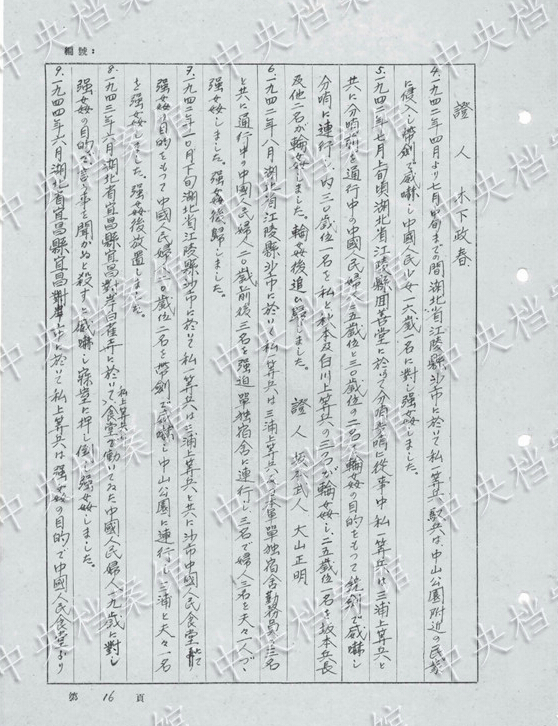 編號:
證人 木下政春
4.一九四二年四月より七月中旬までの間湖北省江陵縣沙市に於いて私一等兵 馭兵は、中山公園附近の民家
に侵入し帯劍で威嚇し中國人民少女一六歳一名に對し强姦しました。
5.一九四二年七月上旬頃湖北省江陵縣 善堂に於いて分哨 哨に從事中私一等兵は三浦上等兵と
共に分哨前を通行中の中國人民婦人二五歳位と三〇歳位の二名を輪姦の目的をもつて銃劍で威嚇し
分哨に連行し、内三〇歳位一名を私と 本及白川上等兵の三名が輪姦し二五歳位一名を坂本兵長
及他二名が輪姦しました。輪姦後追ひ歸しました。 證人 坂本武人 大山正明
6.一九四二年八月湖北省江陵縣沙市に於いて私一等兵は三浦上等兵 軍單独宿舍勤務員の三名
と共に通行中の中國人民婦人二〇歳前後三名を强迫單独宿舍に連行し三名で婦人三名を夫々一人づゝ
强姦しました。强姦後歸しました。
7.一九四二年一〇月下旬湖北省江陵縣沙市に於いて私一等兵は三浦上等兵と共に沙市中國人民食堂に於て
强姦の目的をもつて中國人民婦人二〇歳位二名を帯劍で威嚇し中山公園に連行し三浦と夫々一名
を强姦しました。强姦後放置しました。
8.一九四三年六月湖北省宜昌縣宜昌對岸白 寺に於いて私上等兵が食堂で働いてゐた中國人民婦人一九歳に對し
强姦の目的で言ふ事を聞かぬと殺すと威嚇し寢室に押し倒し强姦しました。
9.一九四四年六月湖北省宜昌縣宜昌對岸 に於いて私上等兵は强姦の目的で中國人民食堂より
第 16 頁
中央档案馆